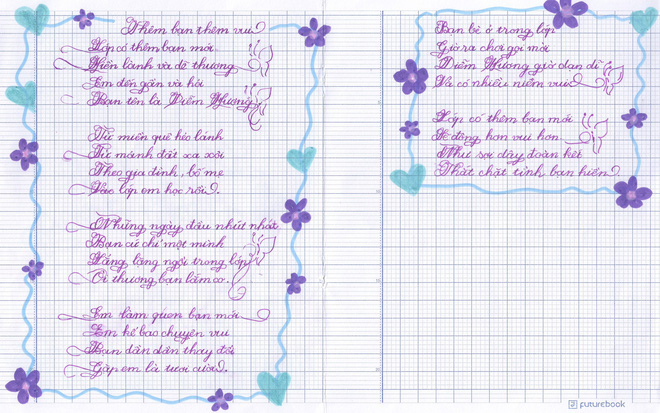 Thêm bạn thêm vui
Lớp có thêm bạn mới
Hiền lành và dễ thương
Em đến gần và hỏi
Bạn tên là Diễm Hương.
Từ miền quê hẻo lánh
Từ mảnh đất xa xôi
Theo gia đình, bố mẹ
Vào lớp em học rồi.
Những ngày đầu nhút nhát
Bạn cứ chỉ một mình
Lẳng lặng ngồi trong lớp
Ôi thương bạn lắm cơ.
Em làm quen bạn mới
Em kể bao chuyện vui
Bạn dần dần thay đổi
Gặp em là tươi cười.
Bạn bè ở trong lớp
Giờ ra chơi gọi mời
Diễm Hương giờ dạn dĩ
Và có nhiều niềm vui
Lớp có thêm bạn mới
Sẽ đông hơn vui hơn
Như sợi dây đoàn kết
Thắt chặt tình bạn hiền
futurebook